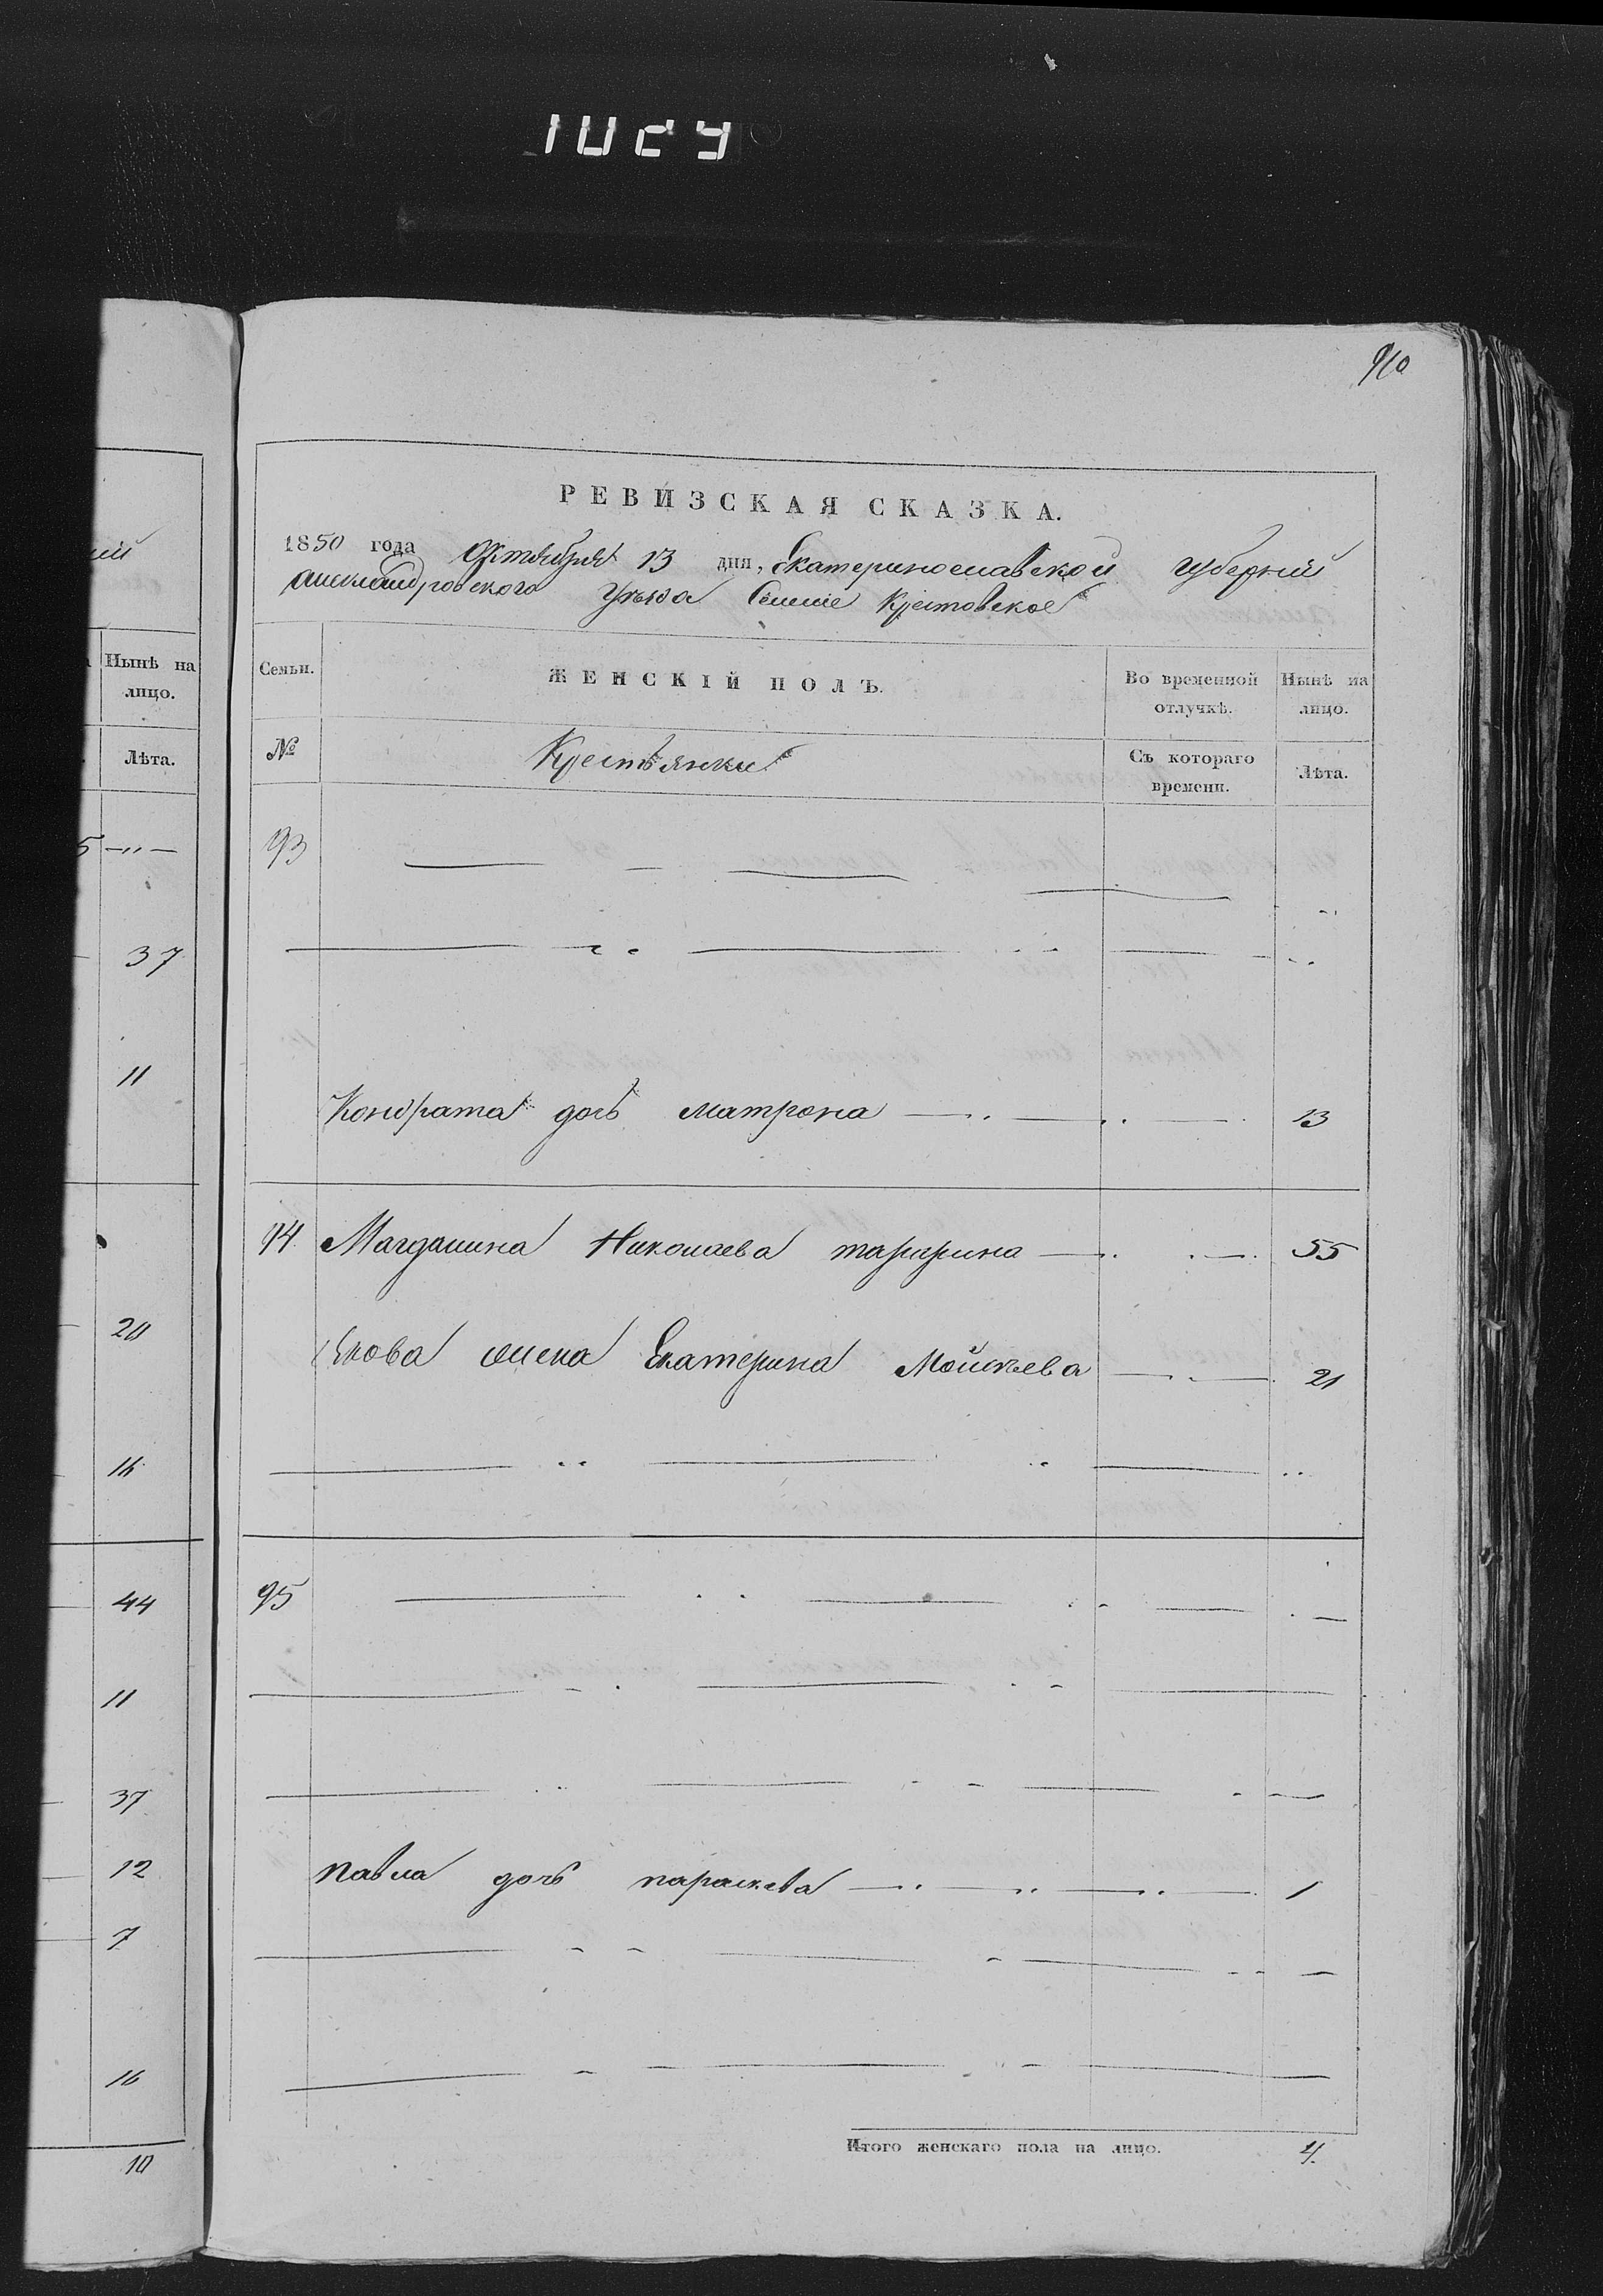 910
РЕВИЗСКАЯ СКАЗКА.
1850 года Октября 13 дня, Екатеринославской губерніи
александровского уѣзда Крестовское
Нынѣ на лицо.
Лѣта.
5 —〃—
37
11
20
16
44
11
37
12
7
16
10
Семьи. ЖЕНСКІЙ ПОЛЪ. Во временной отлучкѣ. Нынѣ на лицо.
№ Крестьянки Съ котораго времени. Лѣта.
93
Кондрата дочь матрона 13
94 Магдалина Николаева 55
жена Екатерина Мойсѣева 21
95
павла дочь параскева 1
Итого женскаго пола на лицо. 4.